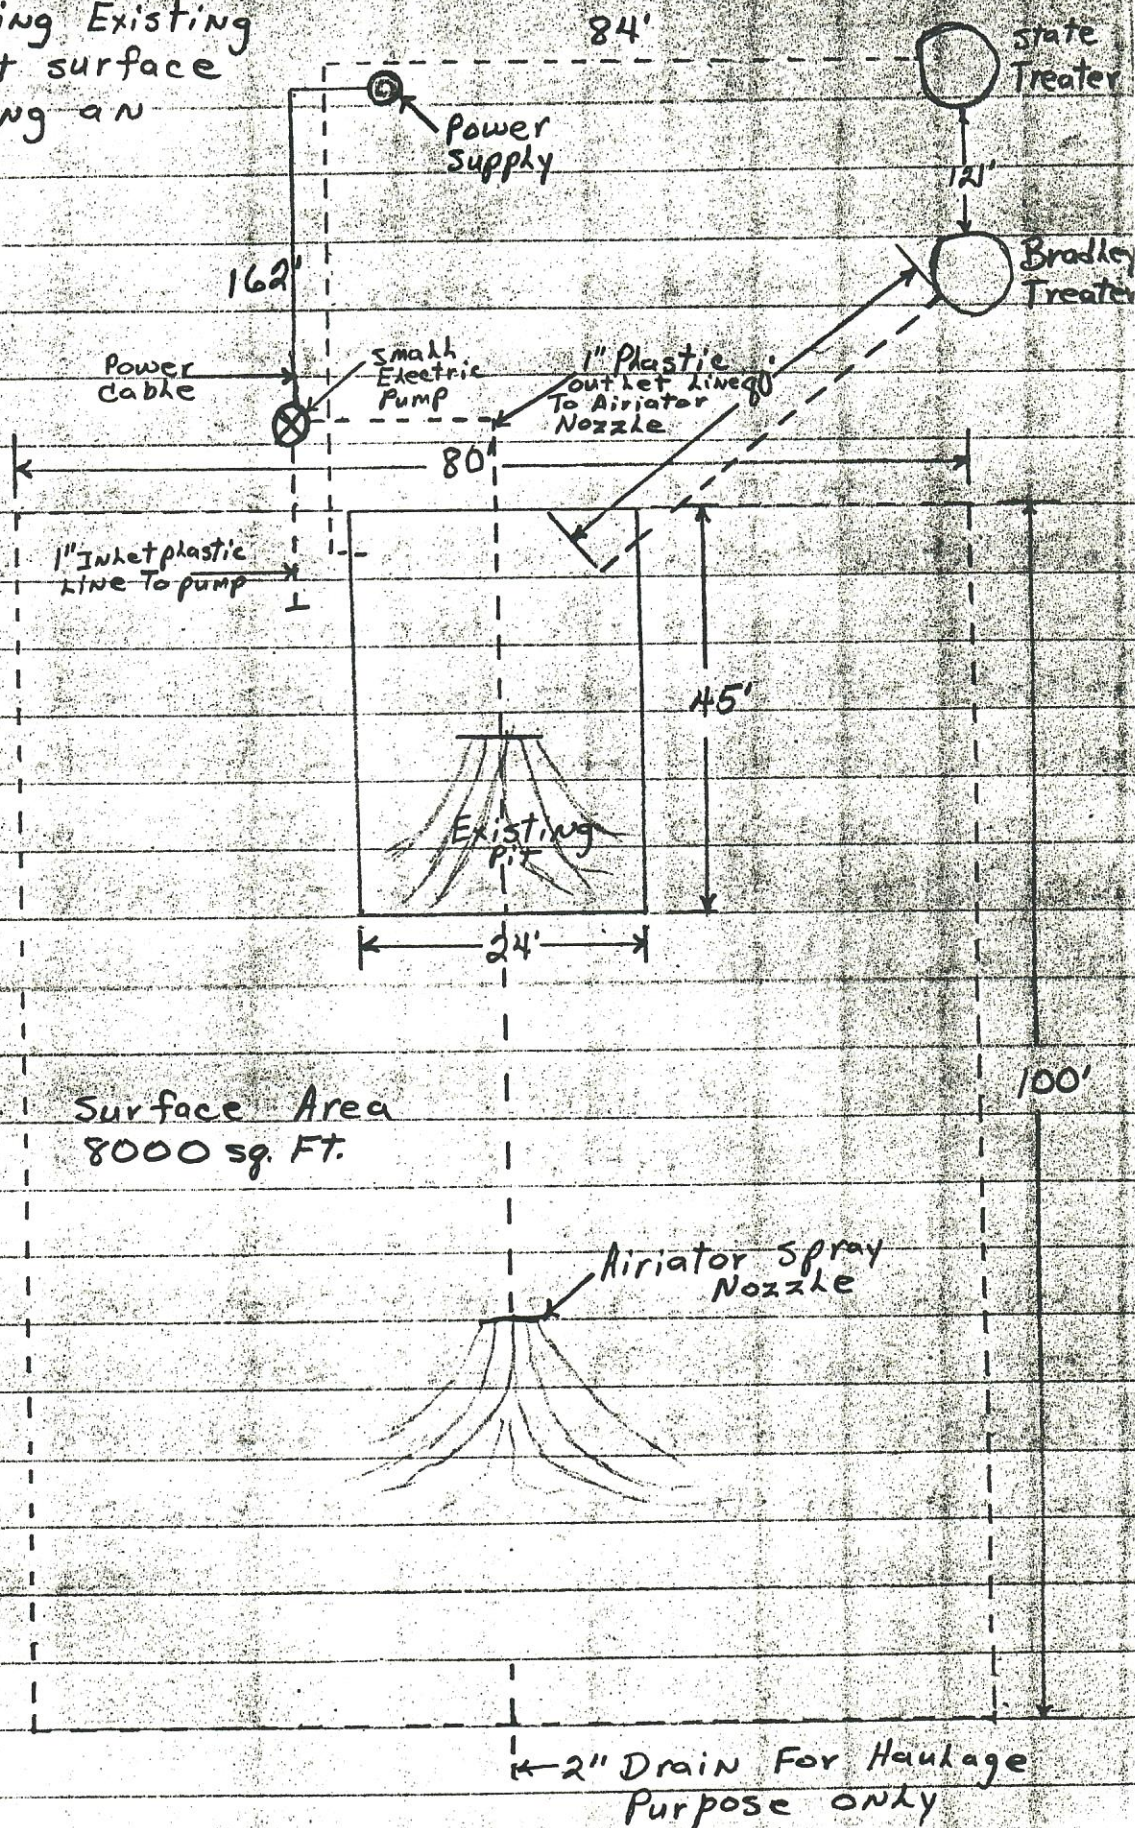 ing Existing
t surface
ng an
84'
State
Treater
Power
Supply
12'
Bradley
Treater
162'
Power
Cable
Small
Electric
Pump
1" Plastic
outlet Line
To Airiator
Nozzle
80'
80'
1" Inlet plastic
Line To pump
45'
Existing
Pit
24'
100'
Surface Area
8000 sq. Ft.
Airiator Spray
Nozzle
2" Drain For Haulage
Purpose ONLY